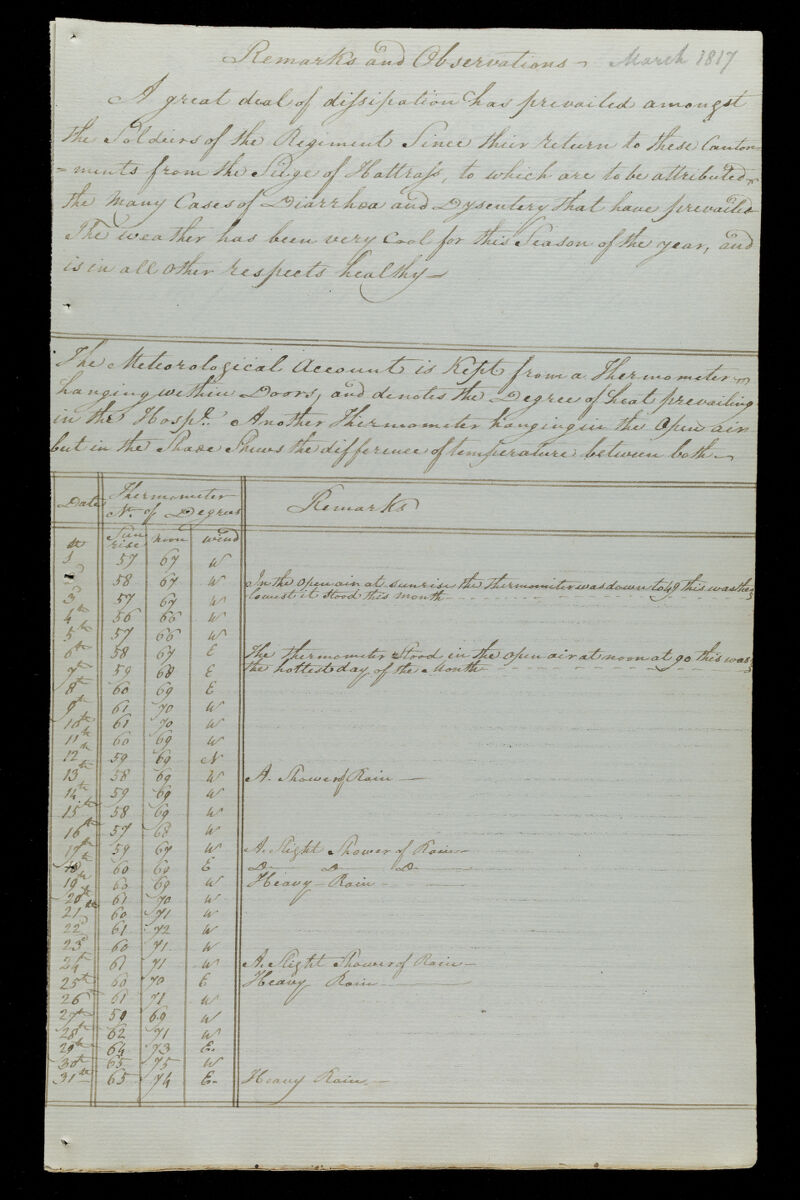 Remarks and Observations - March 1817
A great deal of dissipation has prevailed amongst
the Soldiers of the Regiment Since their return to these Canton=
=ments from the Siege of Hattrass, to which are to be attributed
the Many Cases of Diarrhœa and Dysentery that have prevailed
The weather has been very Cool for this Season of the year, and
is in all other respects healthy -
The Meteorological Account is Kept from a Thermometer
hanging within Doors, and denotes the Degree of heat prevailing
in the Hospl. Another Thermometer hanging in the Open air
but in the Shade Shews the difference of temperature between both -
Date Thermometer No. of Degrees Remarks
Sun rise noon wind
1st 57 67 W
2d 58 67 W In the open air at sunrise the thermometer was down to 49 this was the
3d 57 67 W lowest it stood this month
4th 56 66 W
5th 57 66 W
6th 58 67 E The thermometer Stood in the open air at noon at 90 this was
7th 59 68 E the hottest day of the Month
8th 60 69 E
9th 61 70 W
10th 61 70 W
11th 60 69 W
12th 59 69 N
13th 58 69 W A Shower of Rain -
14th 59 69 W
15th 58 69 W
16th 57 68 W
17th 59 67 W A Slight Shower of Rain -
18th 60 69 E Do Do Do
19th 63 69 W Heavy Rain -
20th 61 70 W
21st 60 71 W
22d 61 72 W
23d 60 71 W
24th 61 71 W A Slight Shower of Rain -
25th 60 70 E Heavy Rain
26 61 71 W
27th 59 69 W
28th 62 71 W
29th 64 73 E.
30th 65 75 W
31st 65 74 E. Heavy Rain. -